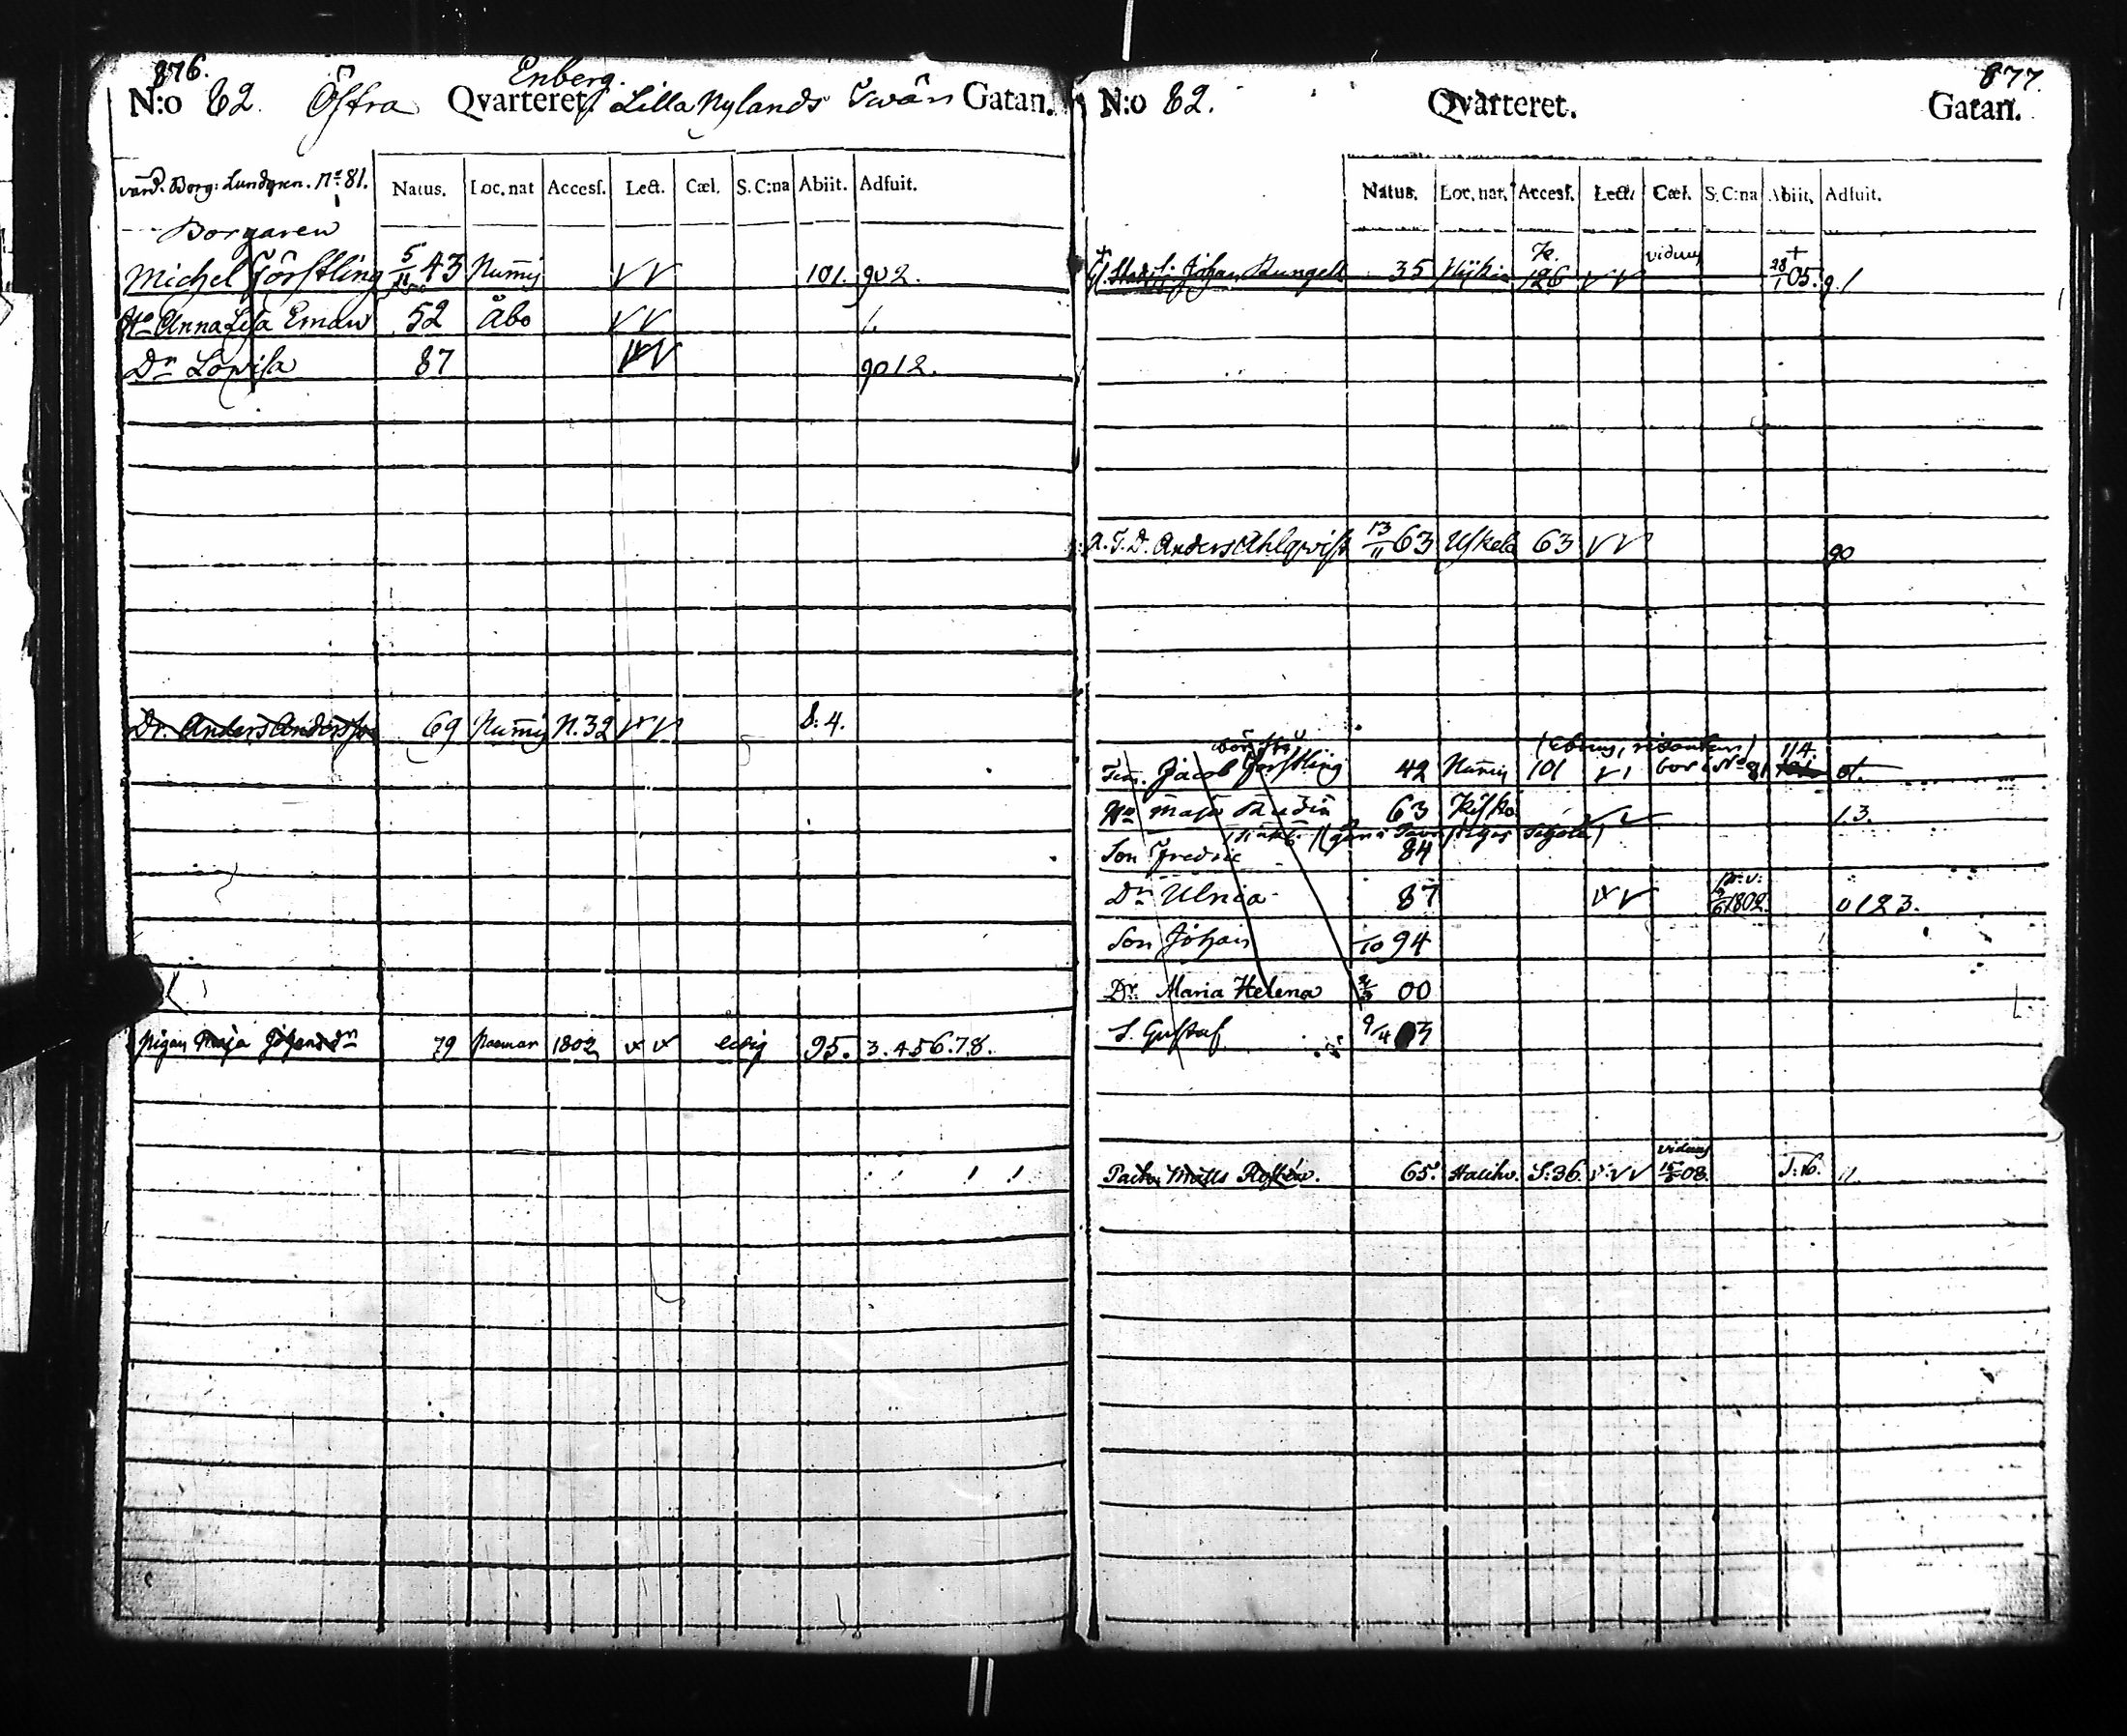 876.
Enberg.
N:o 82. Östra Qvarteret. Lilla Nylands Twär Gatan.
värd. Borg: Lundgren. No 81. Natus. Loc. nat Accesf. Lect. Cæl. S. C:na Abiit. Adfuit.
Borgaren
Michel Förstling 5/11 43 Numis V V 101. 902.
Anna Lisa Eman 52 Åbo V V 1.
Dr Lovisa 87 V V 9012.
Dr. Anders Andersson 69 Numis N.32 V V 8:4.
pigan Maja Johansdr 79 1802 V V ledig 95. 3.45678.
877.
N:o 82. Qvarteret. Gatan.
Natus. Loc. nat. Accesf. Lect. Cæl. S. C:na Abiit. Adfuit.
+ Johan 35 126 V V viduus + 28/1 05. 9.1
A.T.D. Anders Ahlqvist 13/11 63 Uskela 63 V V 90
Jacob Förstling 42 Numis 101 V bor No 81 114 01.
Maja 63 Kisko V V 13.
Son Fredric 84
Dr Ulrica 87 V V 1802. 0123.
Son Johan /10 94
Dr Maria Helena 00
S. Gustaf 9/4 03
Matts 65. Haliko. S:36. V V viduus 08. S:16. 11